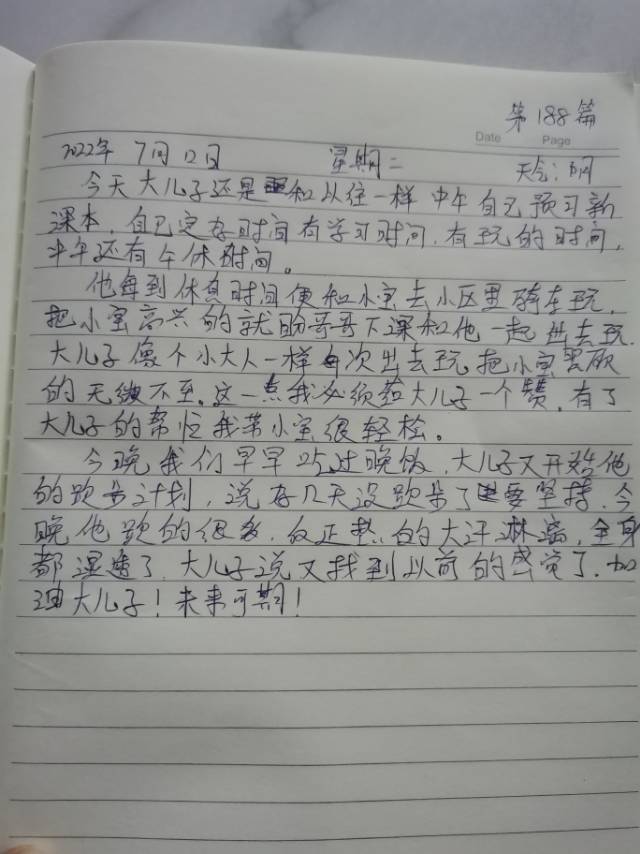 第188篇
Date Page
2022年 7月12日 星期二 天气：阴
今天大儿子还是和以往一样中午自己预习新
课本，自己定好时间有学习时间，有玩的时间，
中午还有午休时间。
他每到休息时间便和小宝去小区里骑车玩，
把小宝高兴的就盼哥哥下课和他一起出去玩.
大儿子像个小大人一样每次出去玩把小宝照顾
的无微不至。这一点我必须给大儿子一个赞，有了
大儿子的帮忙我带小宝很轻松。
今晚我们早早吃过晚饭，大儿子又开始他
的跑步计划，说好几天没跑步了要坚持，今
晚他跑的很多，反正热的大汗淋漓，全身
都湿透了，大儿子说又找到以前的感觉了．加
油大儿子！未来可期！